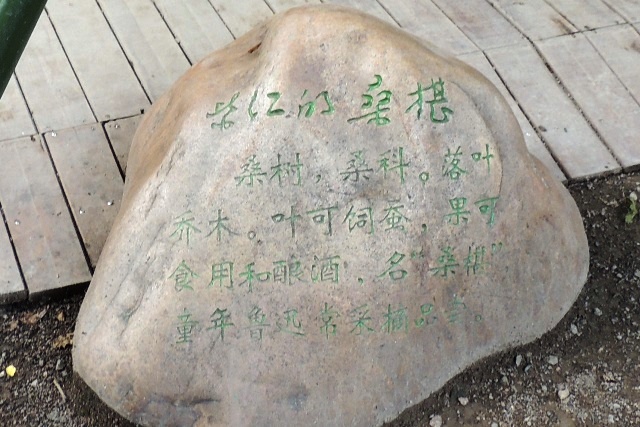 紫红的桑椹
桑树，桑科。落叶
乔木。叶可饲蚕，果可
食用和酿酒，名“桑椹”
童年鲁迅常采摘品尝。